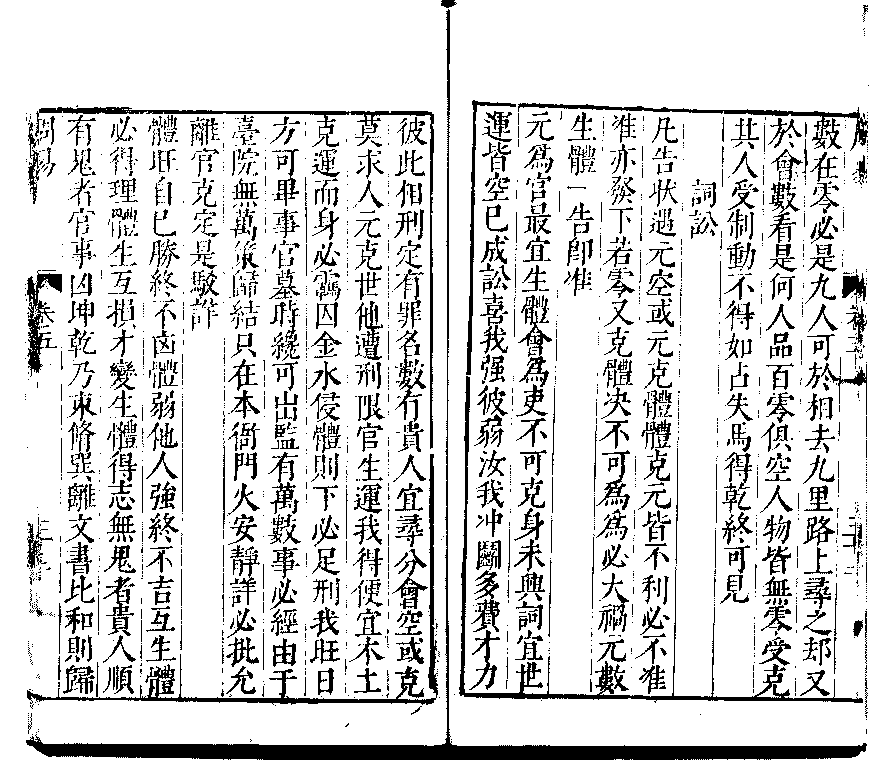 數在零必是九人可於相去九里路上尋之却又
於會數看是何人品百零俱空人物皆無零受克
其人受制動不得如占失馬得乾終可見
詞訟
凡告狀遇元空或元克體體克元皆不利必不准
准亦發下若零又克體决不可爲爲必大禍元數
生體一告卽准
元爲官最宜生體會爲吏不可克身未興詞宜世
運皆空已成訟喜我强彼弱汝我冲鬭多費才力
彼此相刑定有罪名數有貴人宜尋分會空或克
莫求人元克世他遭刑限官生運我得便宜木土
克運而身必羈囚金水侵體則下必足刑我旺日
方可畢事官墓時纔可出監有萬數事必經由于
臺院無萬策歸結只在本衙門火安靜詳必批允
離官克定是駁詐
體旺自已勝終不凶體弱他人強終不吉互生體
必得理體生互損才變生體得志無鬼者貴人順
有鬼者官事凶坤乾乃束脩巽離文書比和則歸
周易
卷五